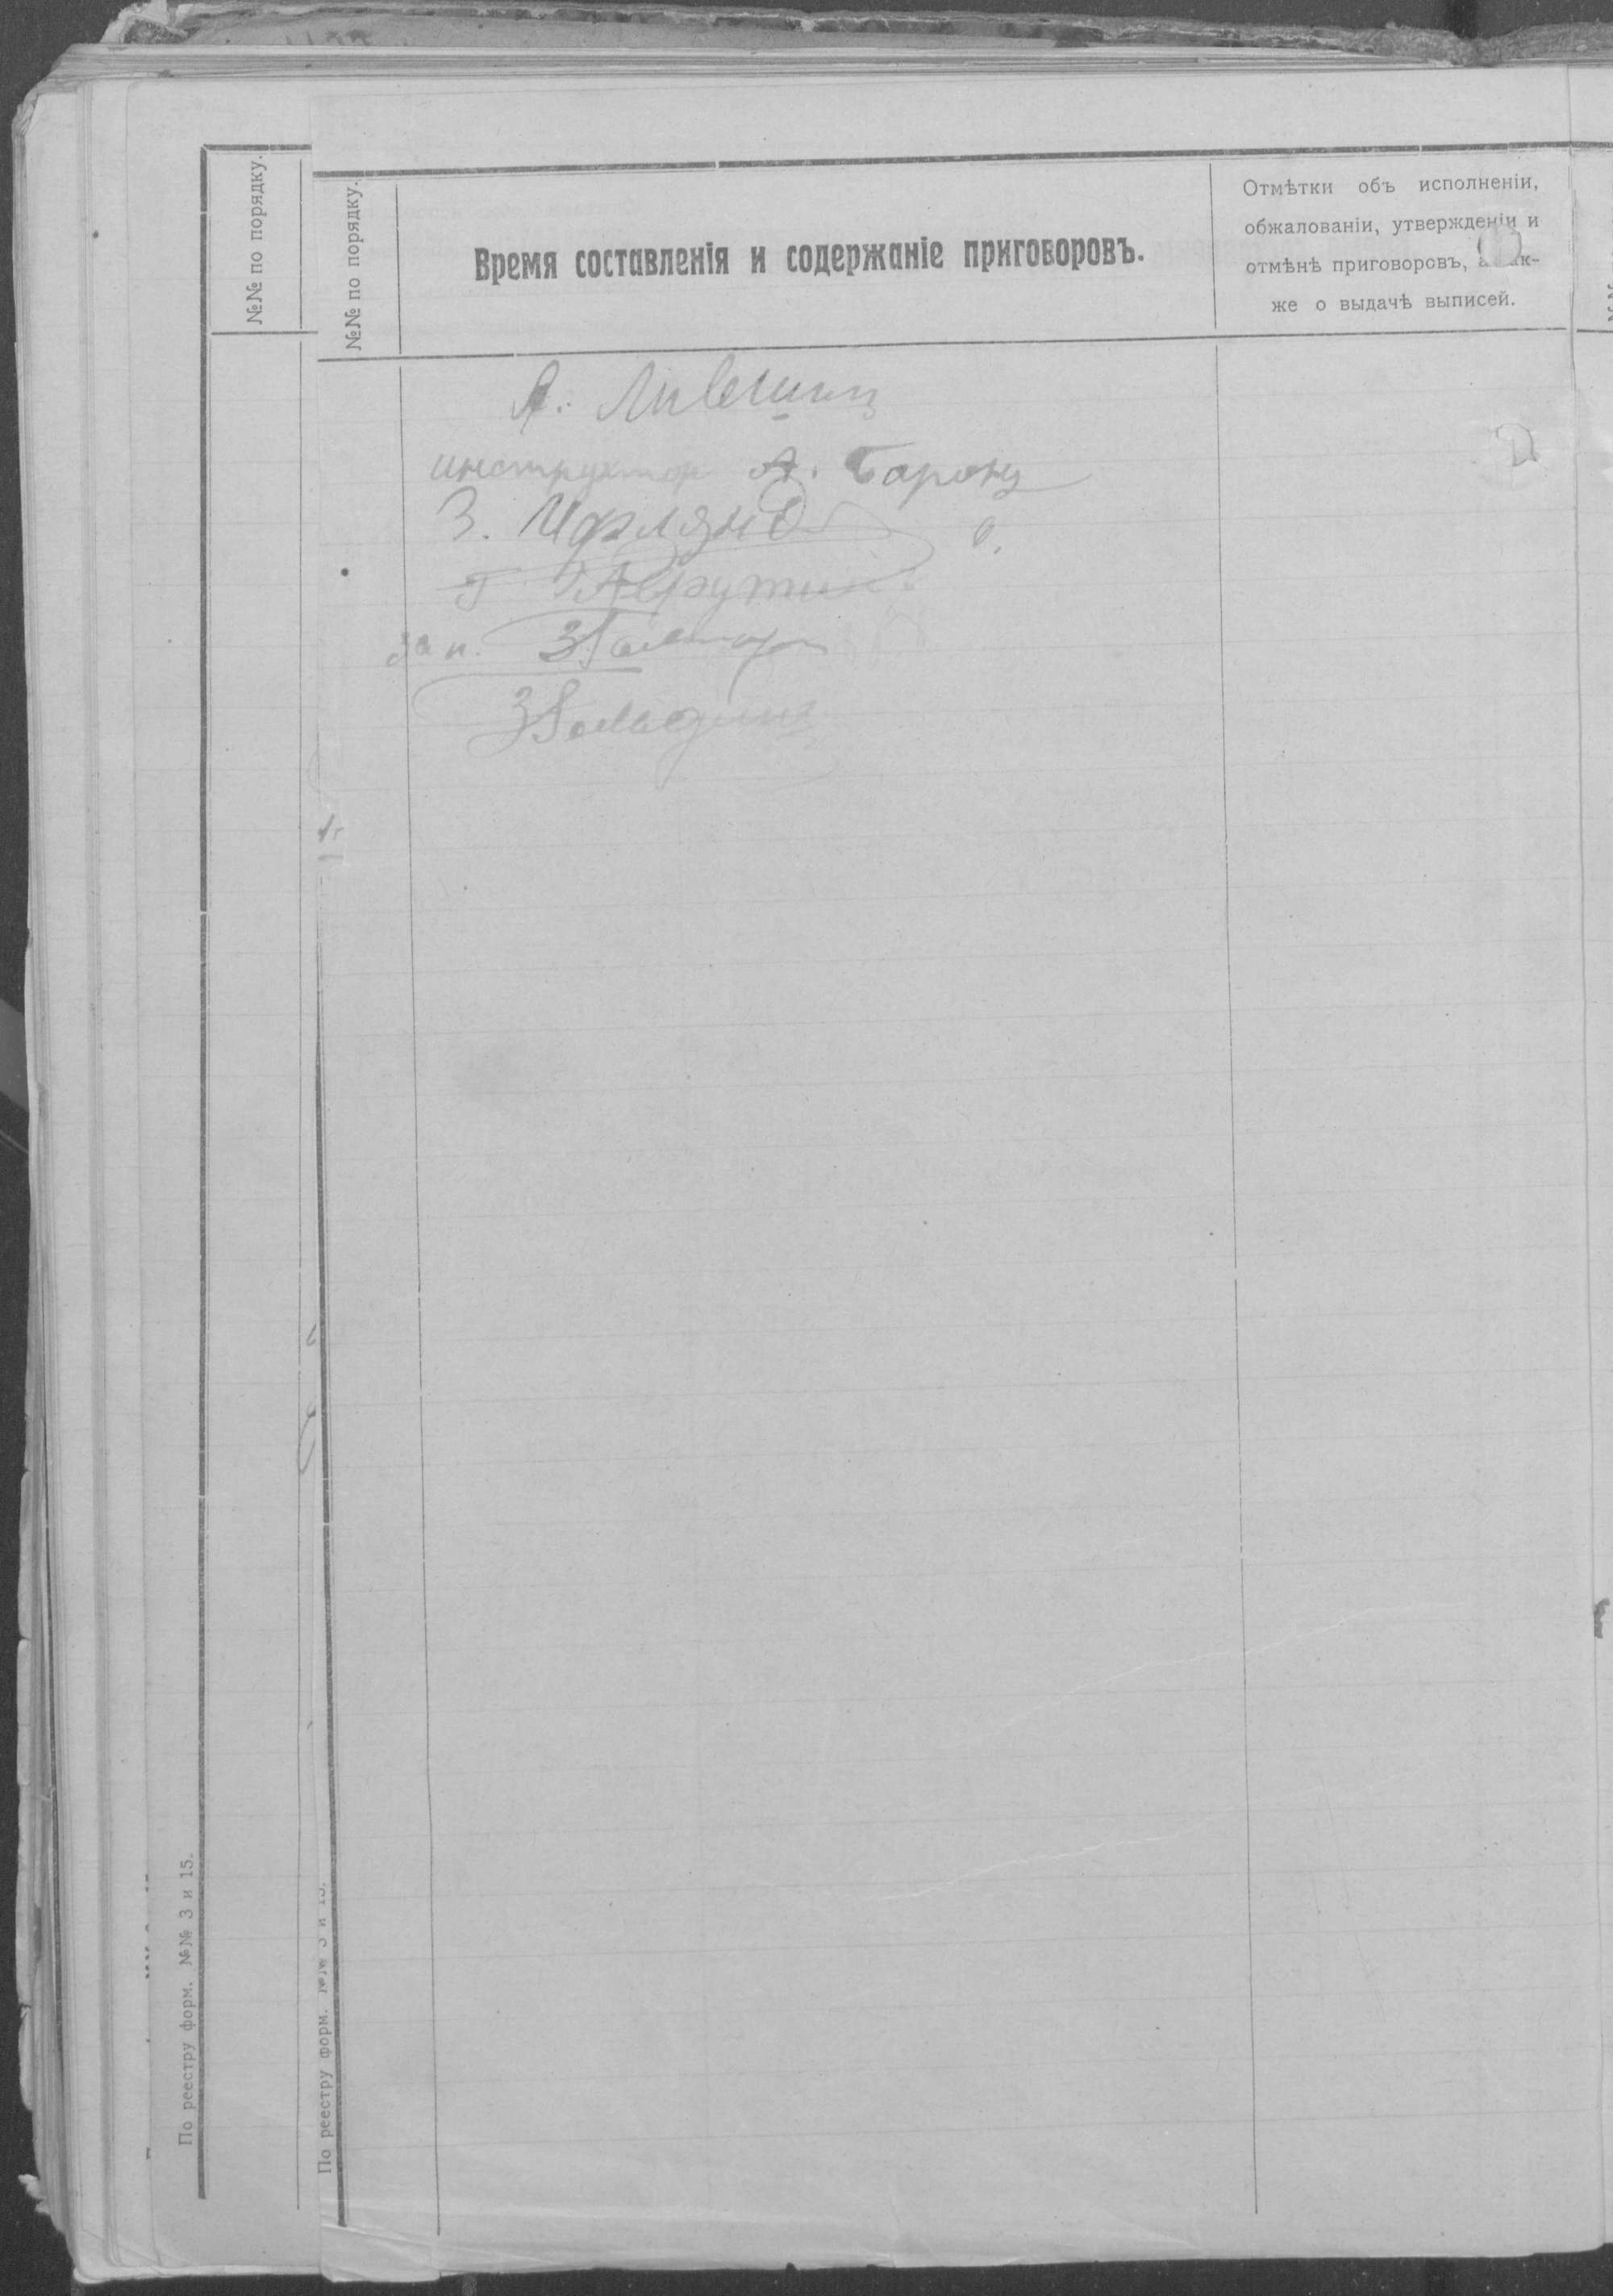 №№ по порядку.
№№ по порядку.
Время составленія и содержаніе приговоровъ.
Отмѣтки объ исполненіи,
обжалованіи, утвержденіи и
отмѣнѣ приговоровъ, а так-
же о выдачѣ выписей.
А. Лившиц
инструктор А. Баронц
З. Ифлянд
Г Аврутин
По реестру форм. №№ 3 и 15.
По реестру форм. №№ 3 и 15.